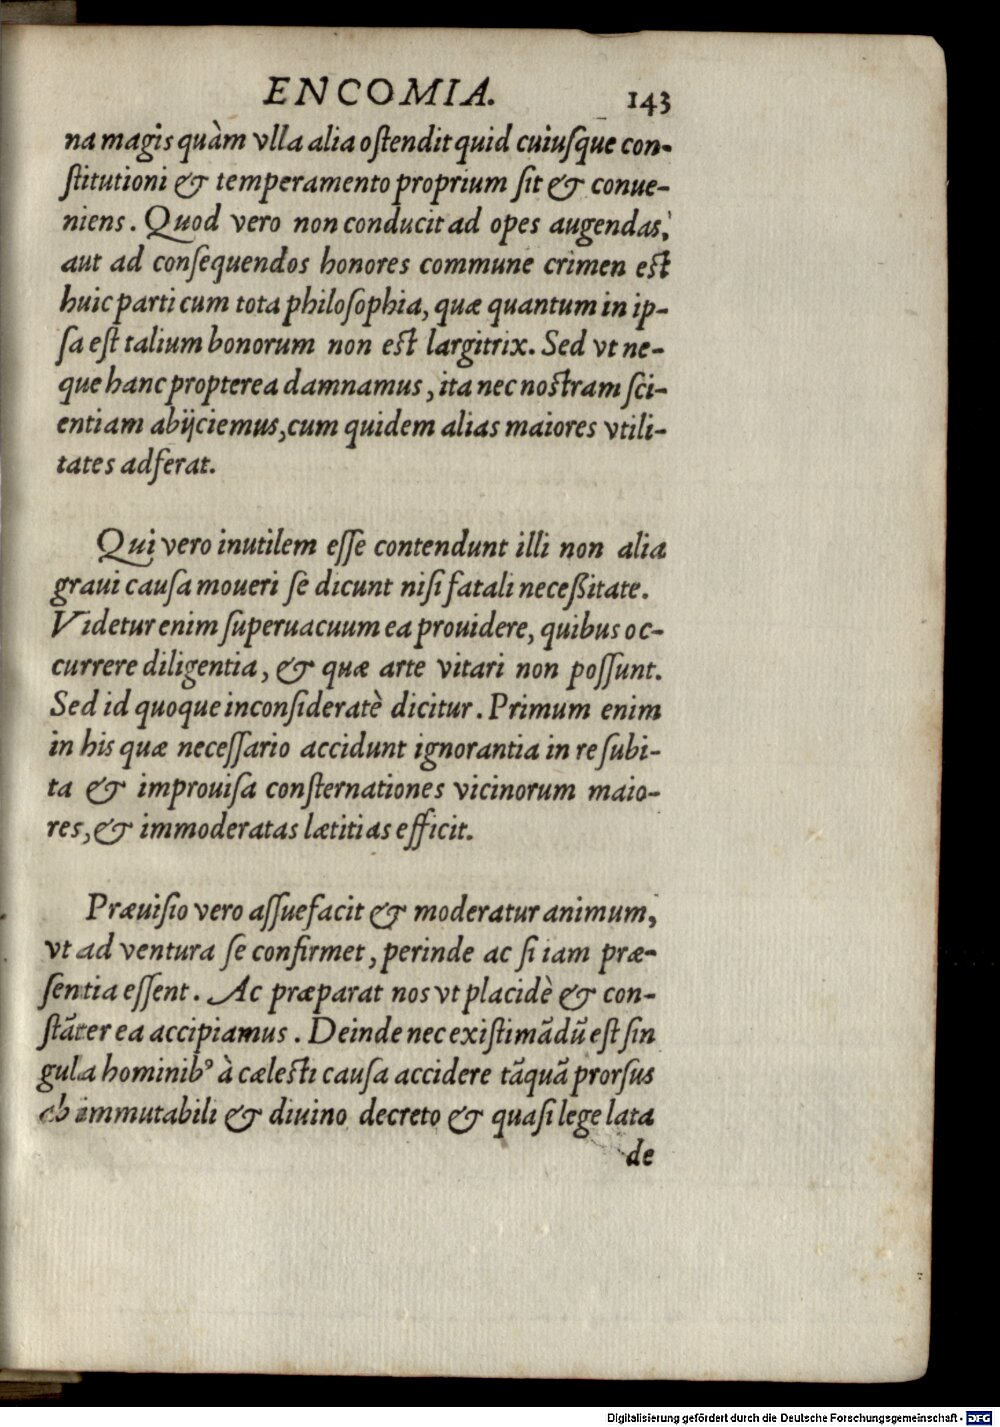 ENCOMIA. 143
na magis quàm vlla alia ostendit quid cuiusque con-
stitutioni & temperamento proprium sit & conue-
niens. Quod vero non conducit ad opes augendas,
aut ad consequendos honores commune crimen est
huic parti cum tota philosophia, quæ quantum in ip-
sa est talium bonorum non est largitrix. Sed vt ne-
que hanc propterea damnamus, ita nec nostram sci-
entiam abijciemus, cum quidem alias maiores vtili-
tates adferat.
Qui vero inutilem esse contendunt illi non alia
graui causa moueri se dicunt nisi fatali neceßitate.
Videtur enim superuacuum ea prouidere, quibus oc-
currere diligentia, & quæ arte vitari non possunt.
Sed id quoque inconsideratè dicitur. Primum enim
in his quæ necessario accidunt ignorantia in re subi-
ta & improuisa consternationes vicinorum maio-
res, & immoderatas lætitias efficit.
Præuisio vero assuefacit & moderatur animum,
vt ad ventura se confirmet, perinde ac si iam præ-
sentia essent. Ac præparat nos vt placidè & con-
stāter ea accipiamus. Deinde nec existimādū est sin
gula hominibꝰ à cælesti causa accidere tāquā prorsus
ab immutabili & diuino decreto & quasi lege lata
de
Digitalisierung gefördert durch die Deutsche Forschungsgemeinschaft - DFG